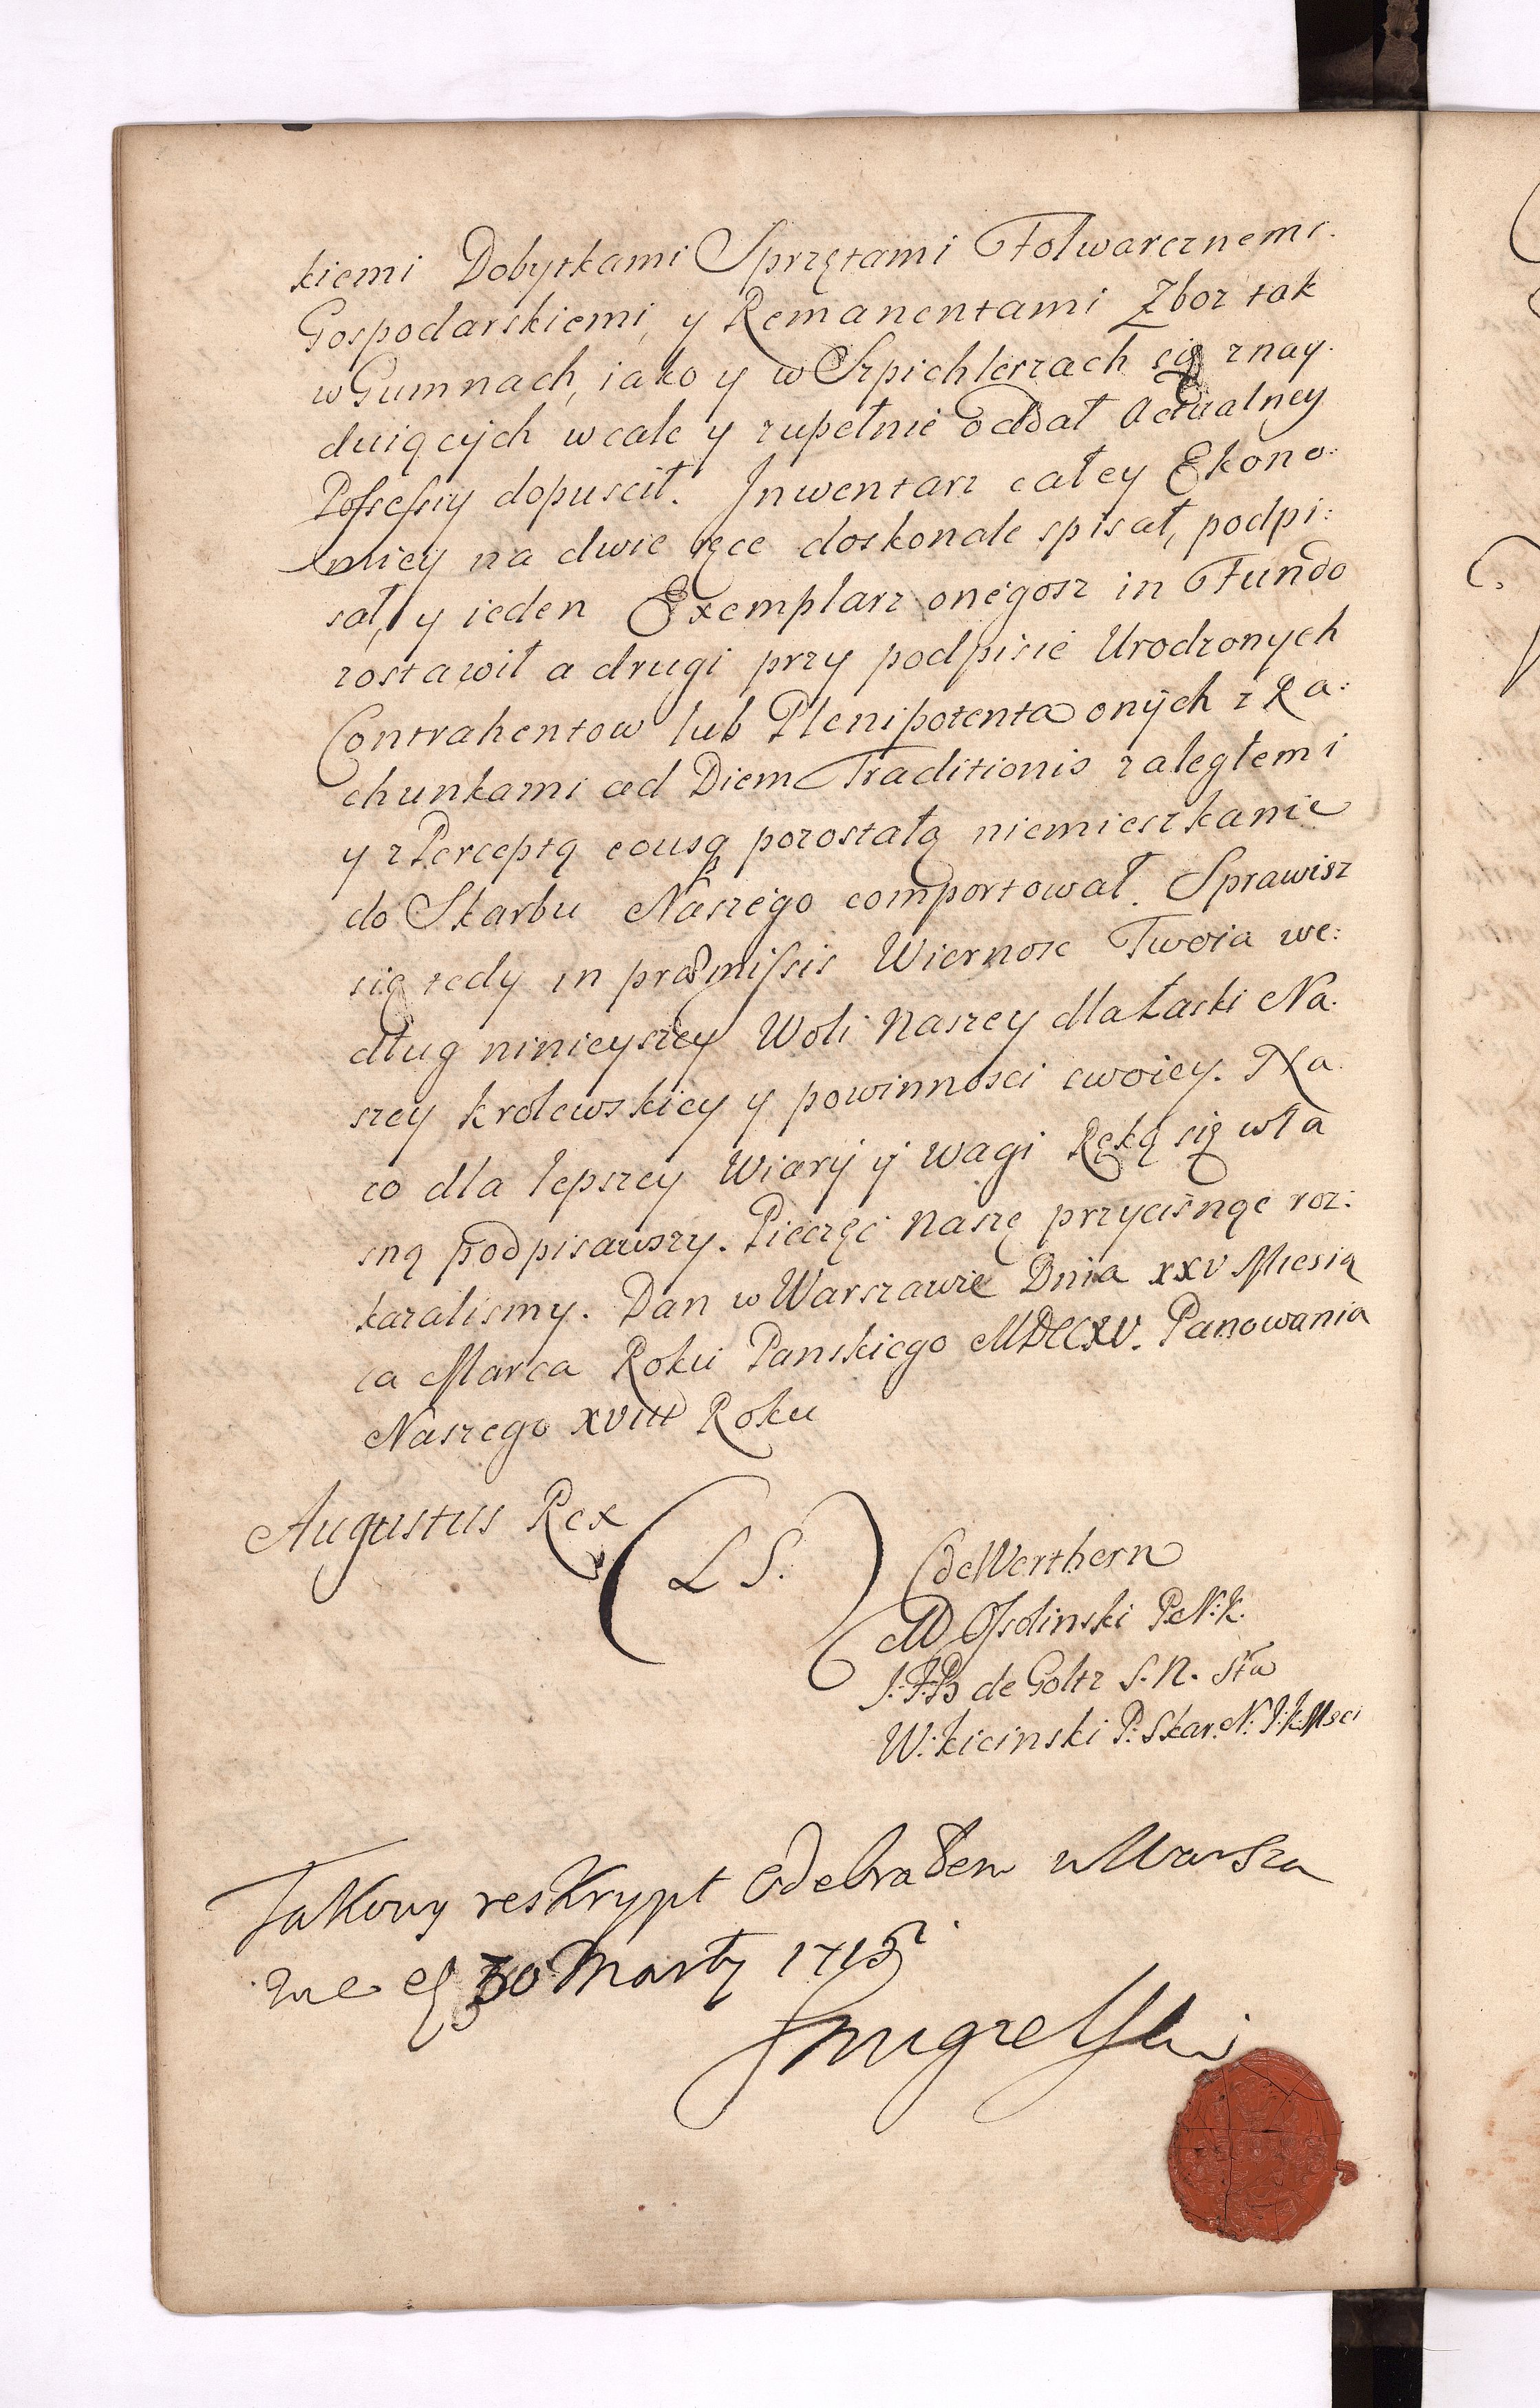 kiemi Dobytkami Sprzętami Folwarcznemi.
Gospodarskiemi, y Remanentami Zboz tak
w Gumnach, iako y w Szpichlerzach się znay.
duiących wcale y zupełnie oddał Actualney
Possessiy dopuscił. Jnwentarz całey Ekono.
miey na dwie ręce doskonale spisał, podpi:
sał, y ieden Exemplarz onegosz in Fundo
zostawił a drugi przy podpisie Urodzonych
Contrahentow lub Plenipotenta onych z Ra:
chunkami ad Diem Traditionis zaległemi
y z Perceptą eousq pozostałą niemieszkanie
do Skarbu Naszego comportował. Sprawisz
się tedy in præmissis Wiernosc Twoia we:
dług ninieyszey Woli Naszey dla Łaski Na.
szey krolewskiey y powinnosci swoiey. Na
co dla lepszey Wiary y wagi Ręką się wła
sną podpisawszy. Pieczęć Naszę przycisnąc roz:
kazalismy. Dan w Warszawie Dnia XXV Miesią
ca Marca Roku Panskiego MDCCXV. Panowania
Naszego XVIII Roku
Augustus Rex
(L S.)
G de Werthern
MD Ossolinski P.N.K.
J:F:B de Goltz S.N. Sta
W: Kicinski P: Skar. N. J:K:Msci
Takowy reskrypt Odebrałem w Warsza
wie 30 Marty 1715